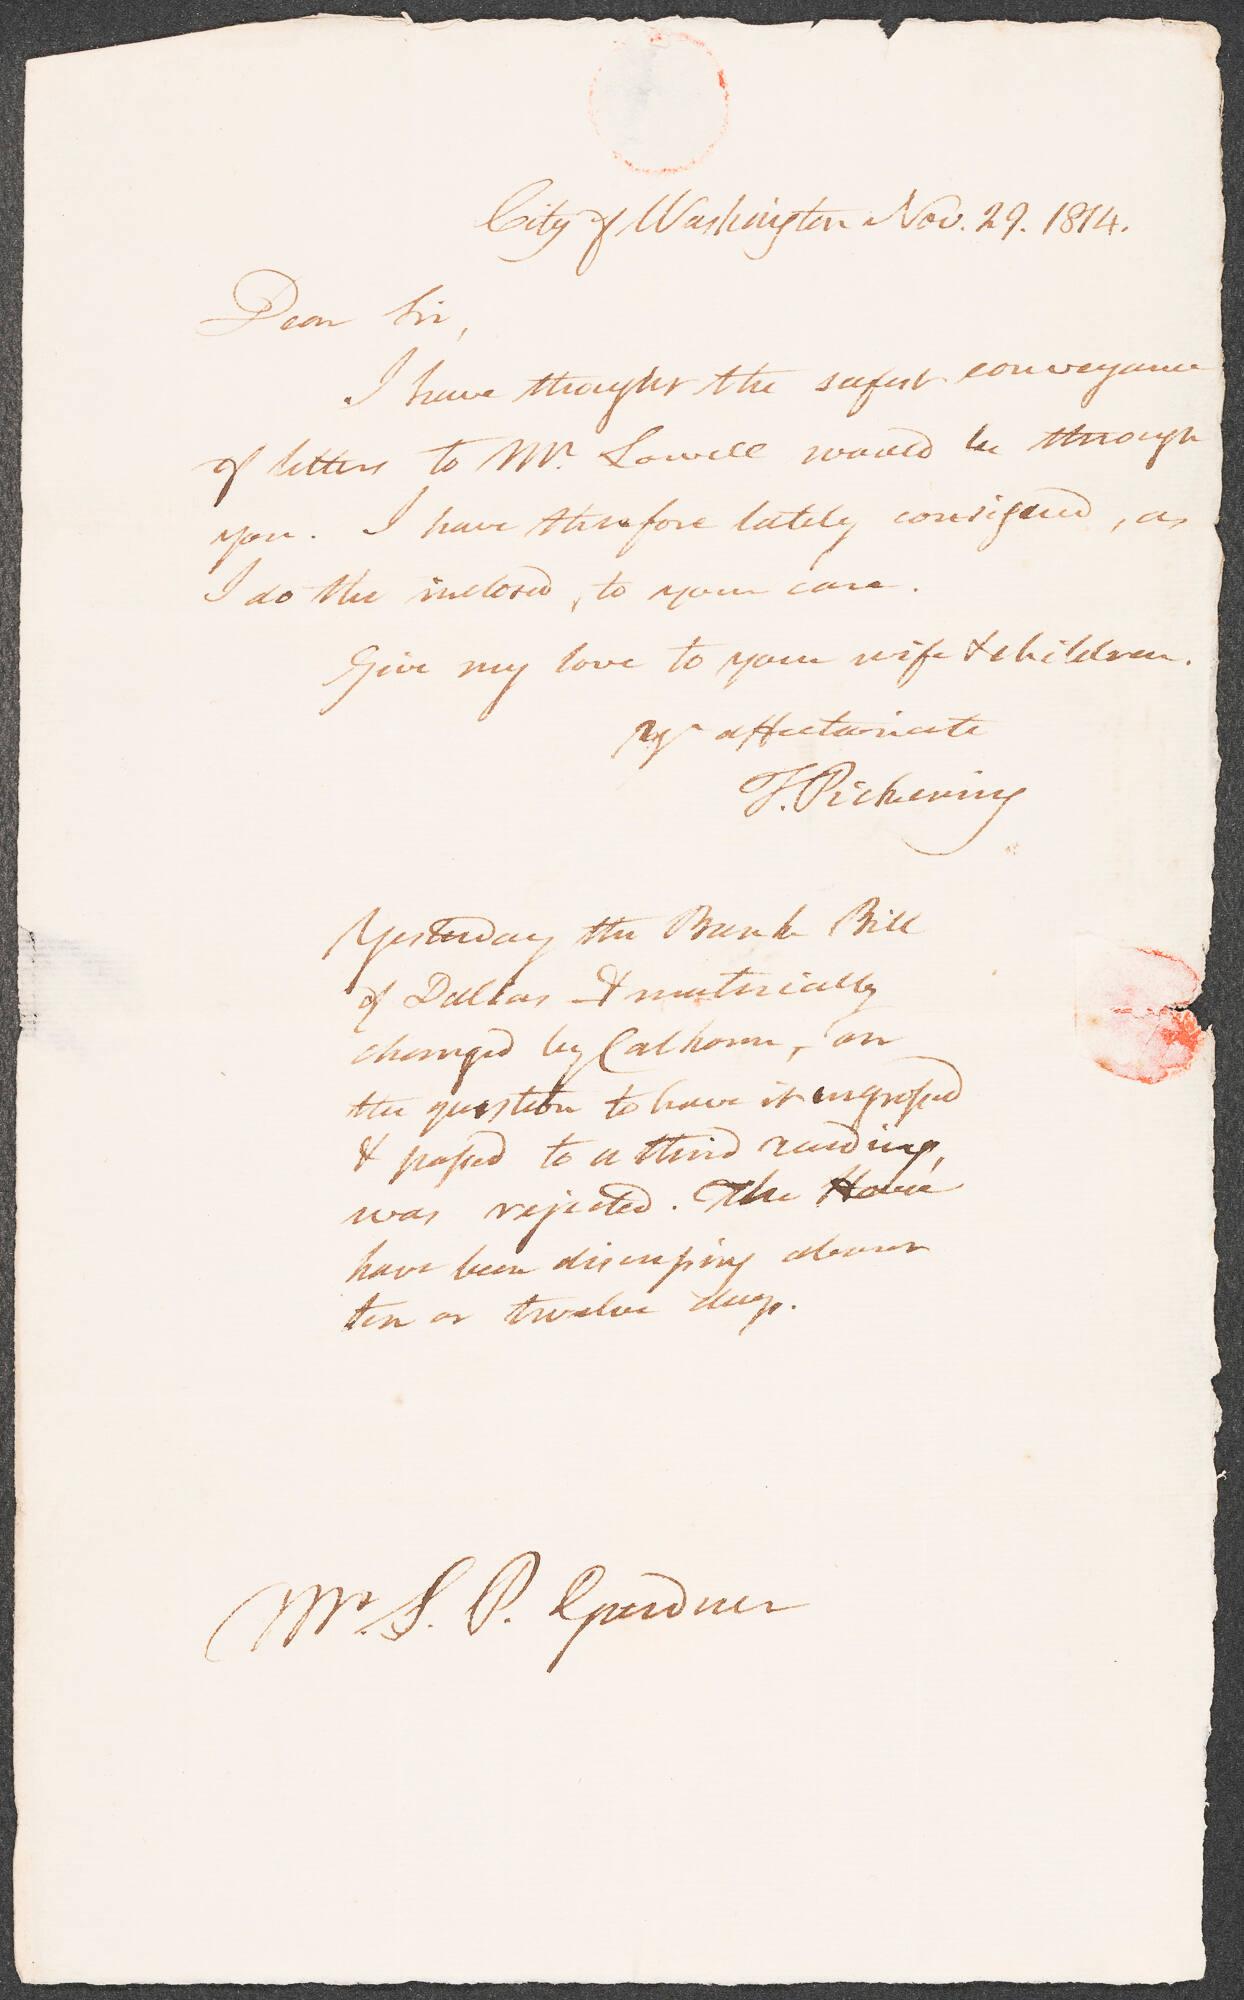 City of Washington Nov. 29. 1814.
Dear Sir,
I have thought the safest conveyance
of letters to Mr. Lowell would be through
you. I have therefore lately consigned, as
I do the inclosed, to your care.
Give my love to your wife & children.
Yr affectionate
T. Pickering
Yesterday the Bank Bill
of Dallas & materially
changed by Calhoun, on
the question to have it ingrossed
& passed to a third reading,
was rejected. The House
have been discussing about
ten or twelve days.
Mr. S. P. Gardner